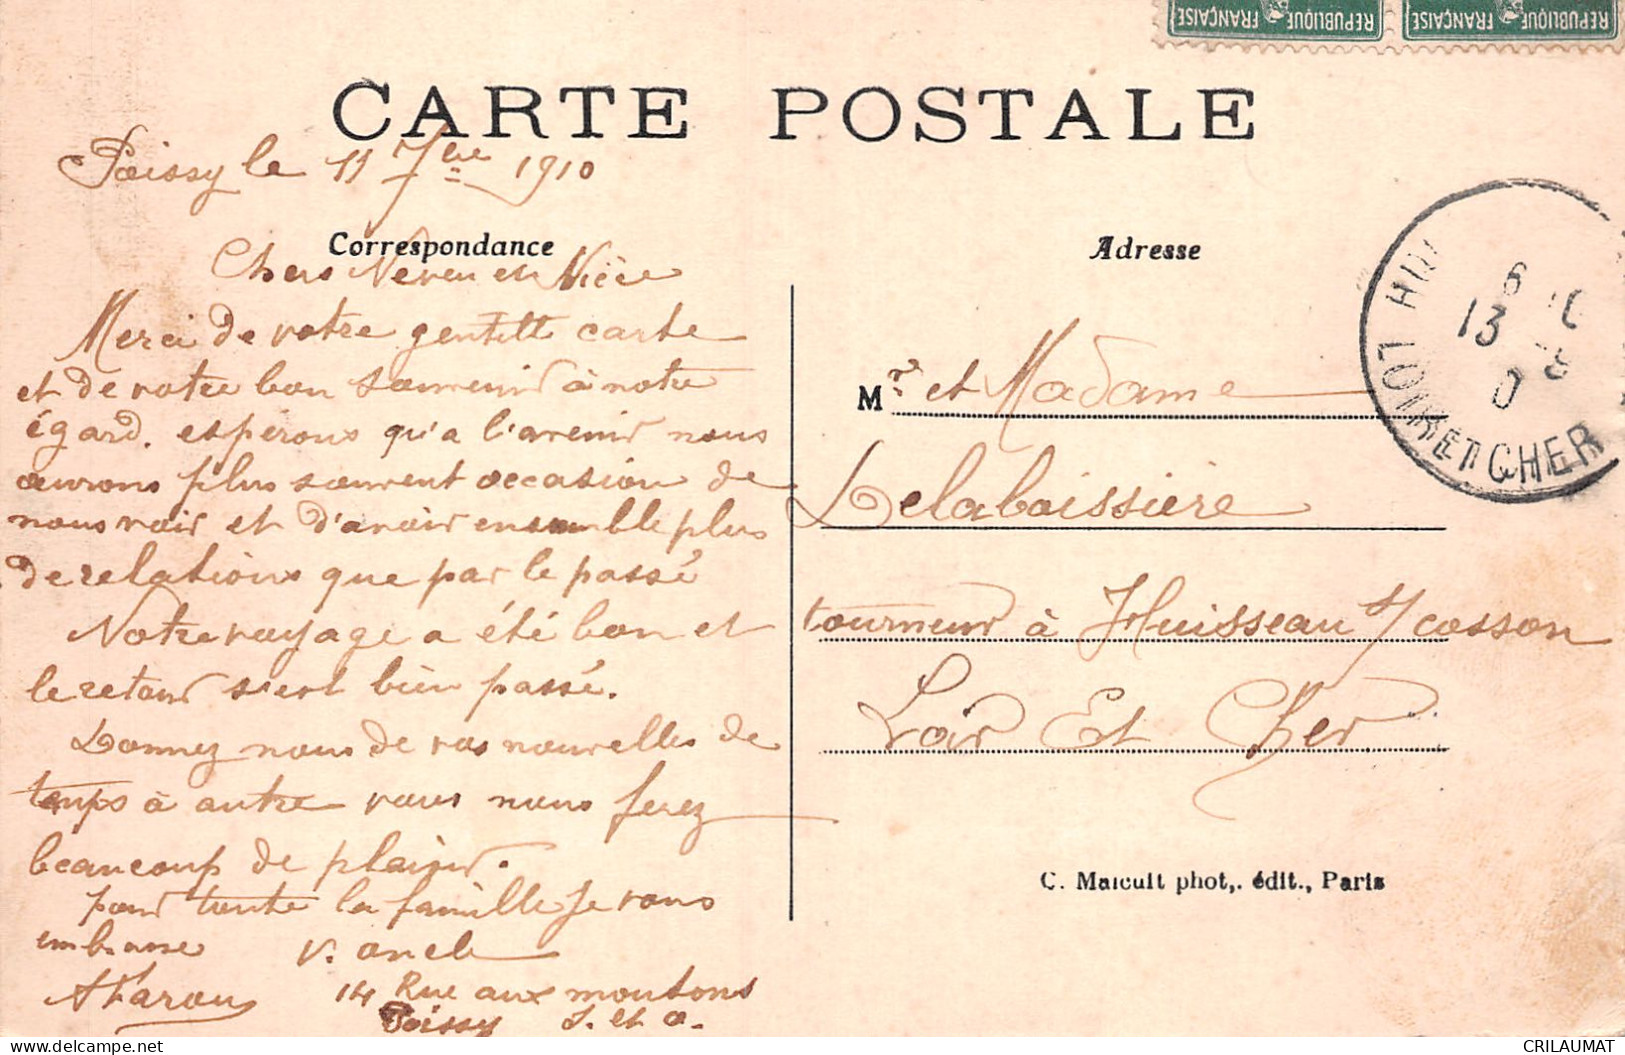 REPUBLIQUE FRANÇAISE REPUBLIQUE FRANÇAISE
CARTE POSTALE
Poissy le 11 7bre 1910
Correspondance
Chers Neveu et Nièce
Merci de votre gentille carte
et de votre bon souvenir à notre
égard. esperons qu'a l'avenir nous
aurons plus souvent occasion de
nous voir et d'avoir ensemble plus
de relations que par le passé
Notre voyage a été bon et
le retour s'est bien passé.
Donnez nous de vos nouvelles de
temps à autre vous nous ferez
beaucoup de plaisir.
pour toute la famille Je vous
embrasse V. oncle
14 Rue aux moutons
Poissy S. et O.
Adresse
Mr et Madame
Delaboissière
tourneur à Huisseau s/ cosson
Loir Et Cher
LOIR ET CHER
13 -9
C. Malcuit phot,. édit., Paris
CRILAUMAT